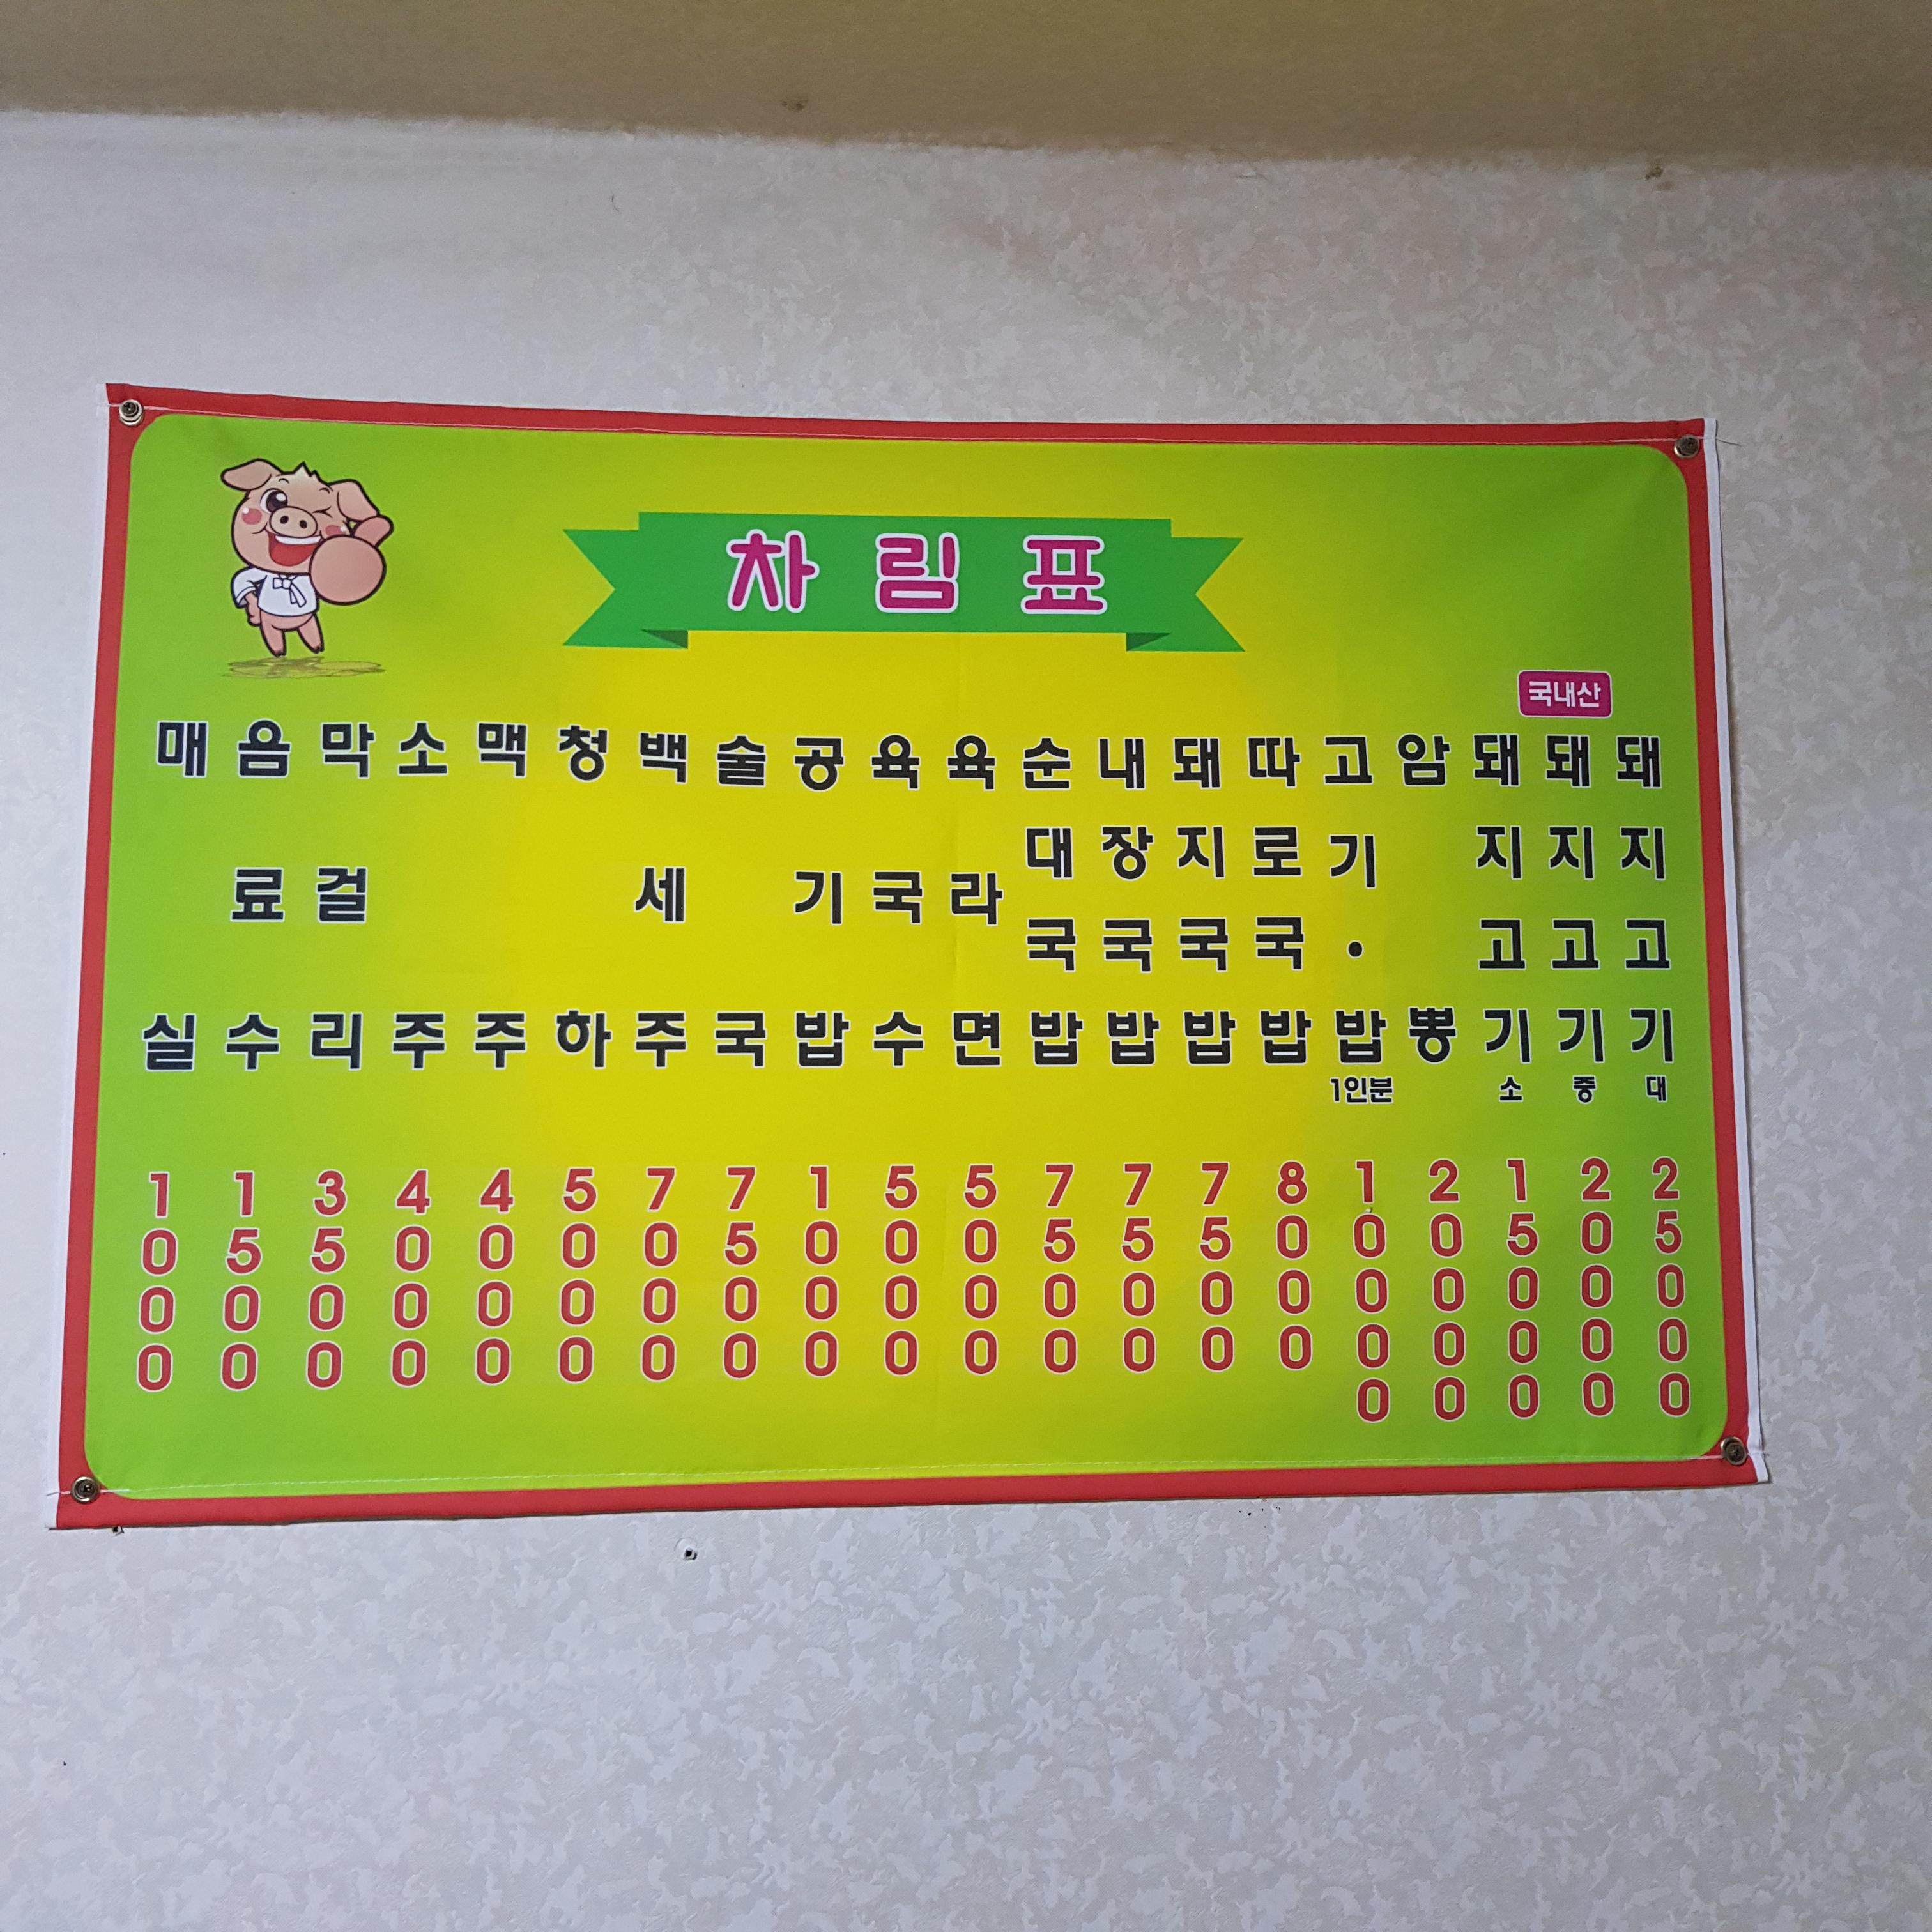 차림표
국내산
돼지고기 대 25000
돼지고기 중 20000
돼지고기 소 15000
암뽕 20000
고기·밥 1인분 10000
따로국밥 8000
돼지국밥 7500
내장국밥 7500
순대국밥 7500
육라면 5000
육국수 5000
공기밥 1000
술국 7500
백세주 7000
청하 5000
맥주 4000
소주 4000
막걸리 3500
음료수 1500
매실 1000